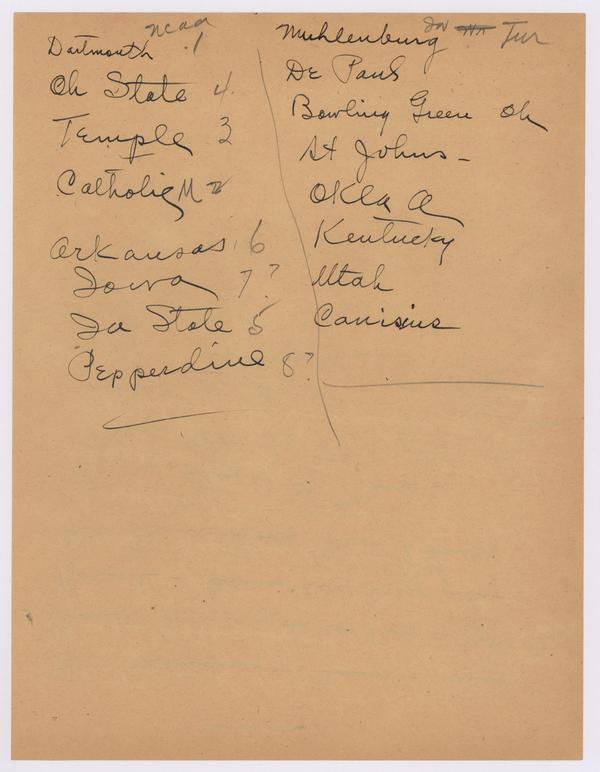 ncaa
Dartmouth .1
Oh State 4.
Temple 3
Catholic M
Arkansas 6
Iowa 7?
Ia State 5
Pepperdine 8?
Muhlenburg Inv Tur
De Paul
Bowling Green Oh
St Johns -
Okla A
Kentucky
Utah
Canisius